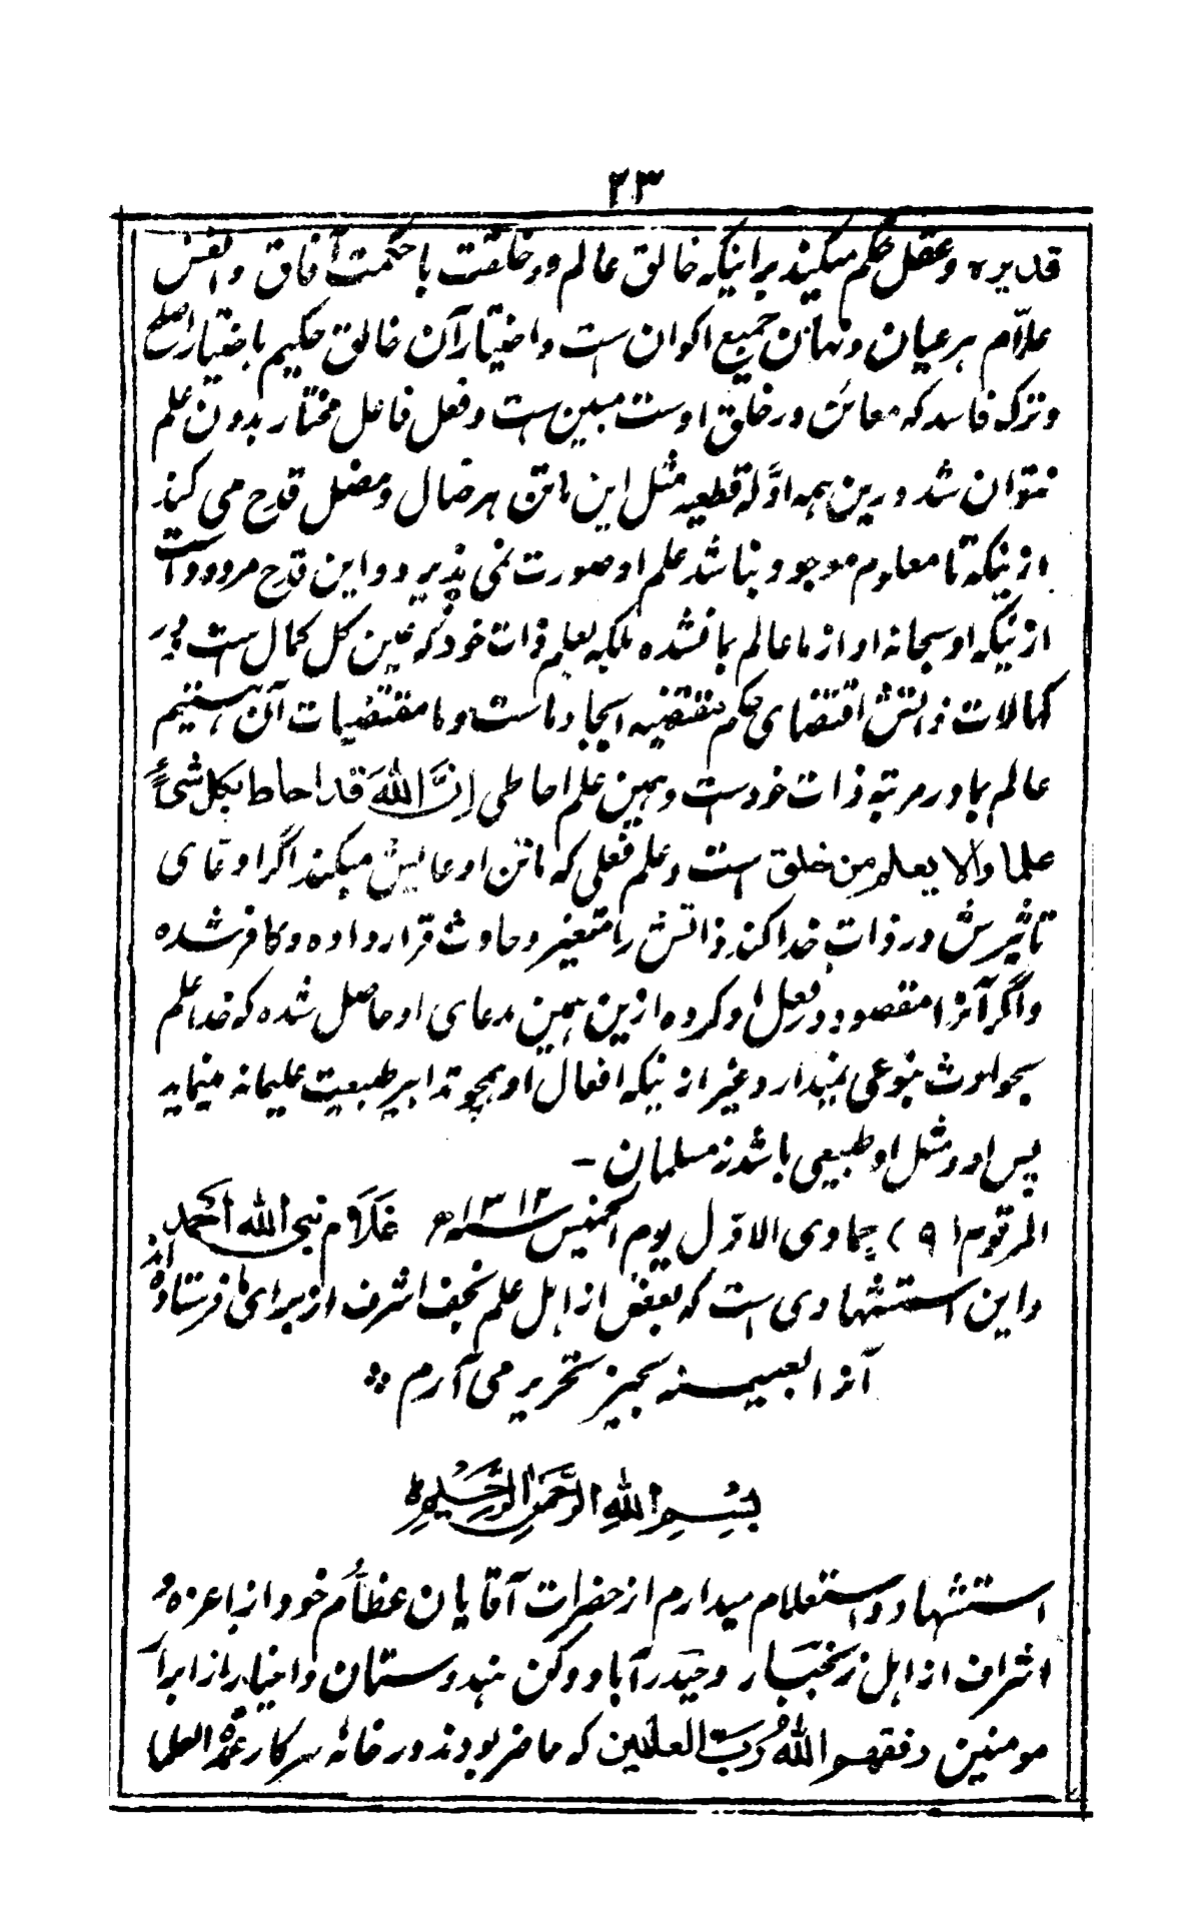 ۲۳
قدیر٥ و عقل حکم میکند برانیکه خالق عالم در خلقت با حکمت آفاق و انفس
علّام هر عیان و نهان جمیع اکوان است و اختیار آن خالق حکیم باختیار اصلح
و ترک فاسد که معائن در خلق اوست مبین است و فعل فاعل مختار بدون علم
نتوان شد و رین همه ادلّه قطعیه مثل این ماتن هر ضال و مضل قدح می کند
ازینکه تا معلوم موجود نباشد علم او صورت نمی پذیرد و این قدح مردود است
ازینکه او سبحانه او از ما عالم بما نشده بلکه بعلم ذات خود که عین کل کمال است و در
کمالات ذاتش اقتضای حکم مقتضیه ایجاد ماست و ما مقتضیات آن هستیم
عالم بما در مرتبه ذات خودست و همین علم احاطی اِنَّ اللهَ قد احاط بکل شیءٍ
علما و الا یعلم من خلق است و علم فعلی که ماتن او عالیش میکند اگر اوعای
تاثیرش در ذاتِ خدا کند ذاتش را متغیر و حادث قرار داده و کافر شده
و اگر آنرا مقصود در فعل او کرده ازین همین مدعای او حاصل شده که خدا علم
بحوادث بنوعی نمیدارد غیر ازینکه افعال او همچو تدابیر طبیعت علیمانه مینماید
پس او و مثل او طبیعی باشد نه مسلمان –
المرقوم (۹) جمادی الاوّل یوم الخمیس سنه ۱۳۱۲ھ غلام نبی الله احمد
و این استشهادی است که بعض از اهل علم نجف اشرف از برای ما فرستاده اند
آنرا بعینه بحیز تحریر می آرم ⁘
بسم الله الرحمن الرحیم٥
استشهاد و استعلام میدارم از حضرات آقایان عظام خود از اعزه و
اشراف از اهل زنجبار و حیدرآباد دکن هندوستان و اخیار از ابرار
مومنین وفقهم الله رب العلمین که حاضر بودند در خانهٔ سرکار عمدة العلما